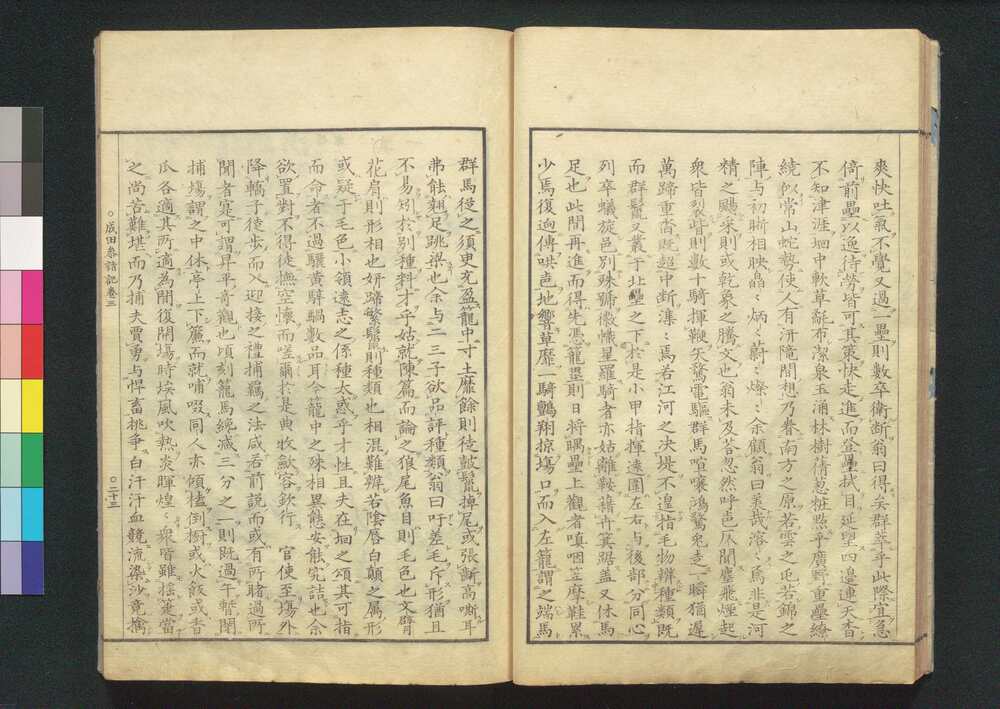 爽快吐氣不覺又過一壘則數卒衛斷翁曰得矣群萃乎此際宜急
倚前壘以逸待勞皆可其策快走進而登壘拭目延望四邊連天杳
不知津涯堀中軟草離布潔泉玉涌林樹蒨葱粧點乎廣野重壘繚
繞似常山蛇勢使人有汧隴間想乃眷南方之原若雲之屯若錦之
陣与初旂相映晶〻炳〻蔚〻燦〻余顧翁曰美哉溶〻焉非是河
精之颺采則或乾象之騰文也翁未及荅忽然呼邑庥聞塵飛煙起
衆皆裂眥則數十騎揮鞭矢騖電驅群馬喧嚷鴻驚兔走一瞬猶遲
萬蹄重沓既超中断潗〻焉若江河之决堤不遑指毛物辨種類既
而群鬣又叢于北壘之下於是小甲指揮遠圍左右与後部分同心
列卒蟻旋邑別殊號徽幟星羅騎者亦姑離鞍藉卉箕踞蓋又休馬
足也此間再進而得先憑龍壘則日将隅壘上觀者嗔咽笠摩鞋累
少焉復逈傳哄邑地響草靡一騎鸇翔掠塲口而入左籠謂之端馬
群馬從之須臾充盈籠中寸土靡餘則徒皷鬣掉尾或張齗高嘶耳
弗能翹足跳梁也余与二三子欲品評種類翁曰吁差毛斥形猶且
不易矧於別種料才乎姑就陳篇而論之狼尾魚目則毛色也文臂
花肩則形相也妍蹄繁鬣則種類也相混難辨若陰唇白顛之属形
或疑于毛色小領遠志之係種太惑乎才性且夫在堈之頌其可指
而命者不過驪黄騂騧數品耳今籠中之殊相異態安能究詰也余
欲置對不得徒撫空懷而嗟嚻於是典牧歛容欽行　官使至塲外
降轎子徒歩而入迎接之禮捕羈之法咸若前説而或有所睹過所
聞者寔可謂昇平奇觀也頃刻籠馬綂減三分之一則既過午暫閉
捕塲謂之中休亭上下簾而就哺啜同人亦傾榼倒橱或火餃或香
瓜各適其所適為閒復開塲時埃風吹熱炎暉煌〻衆皆雖揺箑當
之尚苦難堪而乃捕夫賈勇与悍畜挑争白汗汗血競流染沙竟擒
○成田参詣記巻三
○二十三